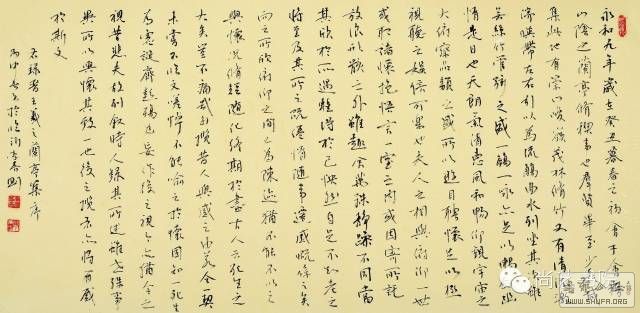 永和九年歲在癸丑暮春之初會于會稽
山陰之蘭亭脩禊事也群賢畢至少長咸
集此地有崇山峻領茂林脩竹又有清流激
湍暎帶左右引以為流觴曲水列坐其次雖
無絲竹管絃之盛一觴一詠亦足以暢叙幽
情是日也天朗氣清惠風和暢仰觀宇宙之
大俯察品類之盛所以遊目騁懷足以極
視聽之娛信可樂也夫人之相與俯仰一世
或取諸懷抱悟言一室之內或因寄所託
放浪形骸之外雖趣舍萬殊靜躁不同當
其欣於所遇暫得於己快然自足不知老之
將至及其所之既惓情隨事遷感慨係之矣
向之所欣俛仰之間已為陳迹猶不能不以之
興懷況脩短隨化終期於盡古人云死生亦
大矣豈不痛哉每攬昔人興感之由若合一契
未嘗不臨文嗟悼不能喻之於懷固知一死生
為虛誕齊彭殤為妄作後之視今亦猶今之
視昔悲夫故列叙時人錄其所述雖世殊事
異所以興懷其致一也後之攬者亦將有感
於斯文
右録晉王羲之蘭亭集序
丙申
WWW.SHUFA.ORG